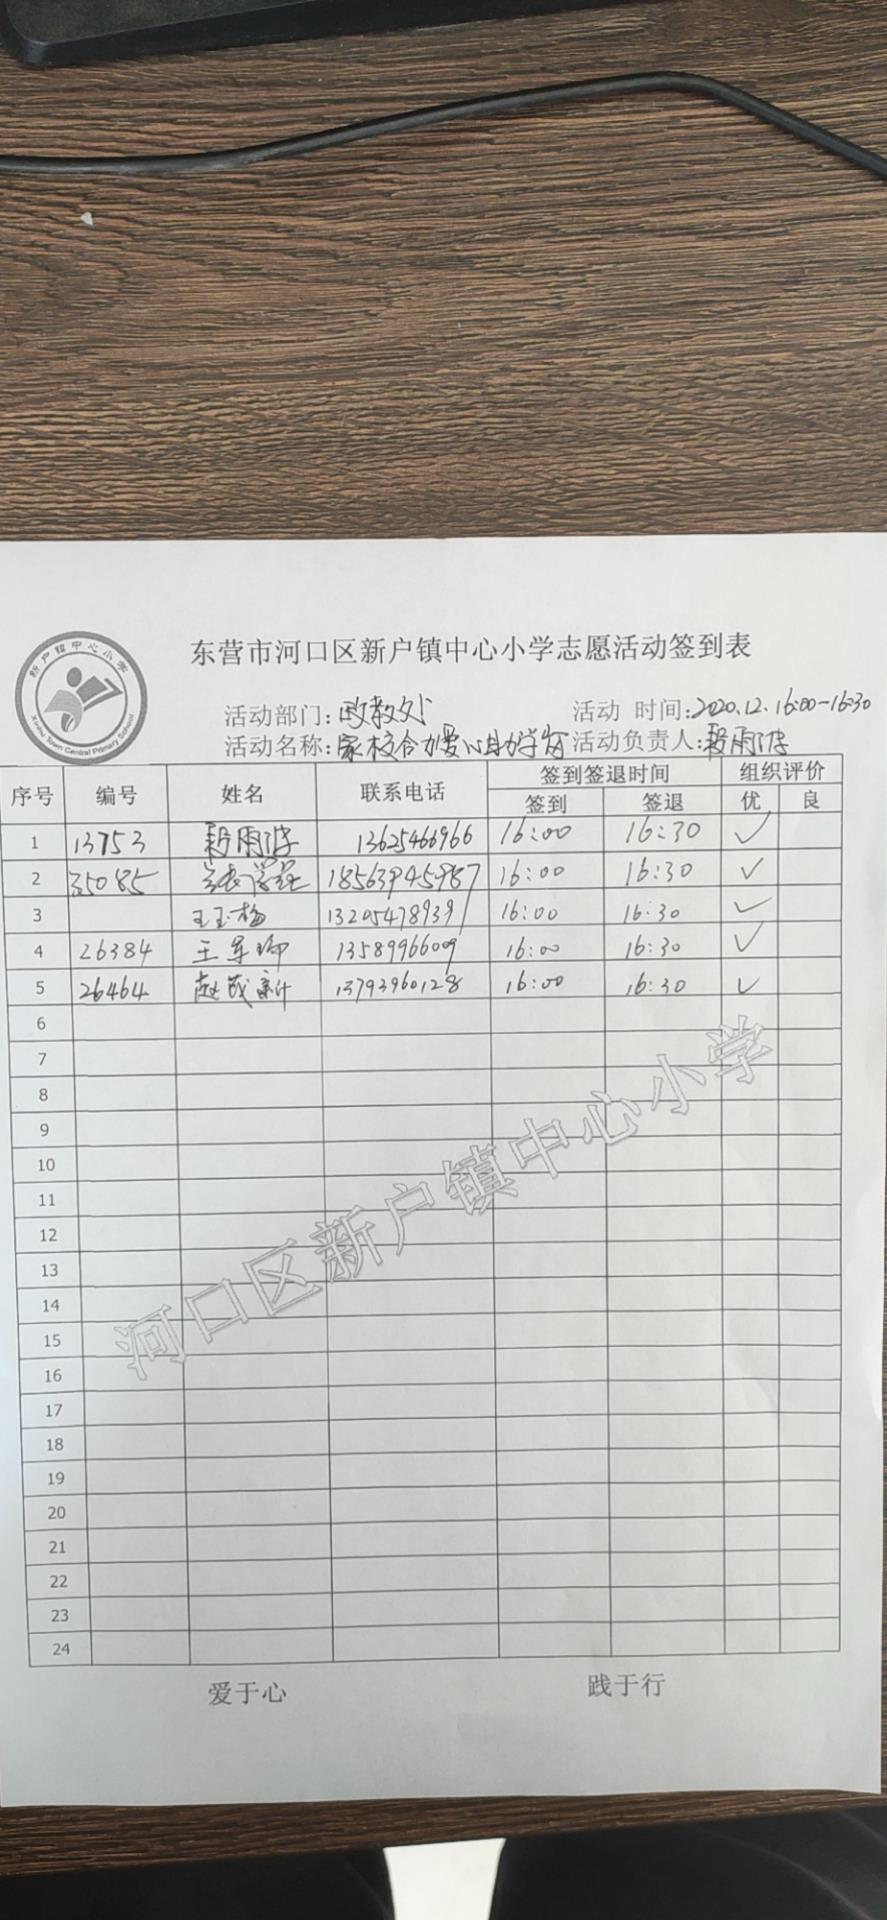 新户镇中心小学
Xinhu Town Central Primary School
东营市河口区新户镇中心小学志愿活动签到表
活动部门:政教处 活动 时间:2020.12.16:00-16:30
活动名称:家校合力爱心助学 活动负责人:
序号 编号 姓名 联系电话 签到签退时间 组织评价
签到 签退 优 良
1 13753 13625466966 16:00 16:30 ✓
2 35085 18563945987 16:00 16:30 ✓
3 王玉梅 13205478939 16:00 16:30 ✓
4 26384 王 13589966009 16:00 16:30 ✓
5 26464 赵茂新 13793960128 16:00 16:30 ✓
6
7
8
9
10
11
12
13
14
15
16
17
18
19
20
21
22
23
24
河口区新户镇中心小学
爱于心 践于行